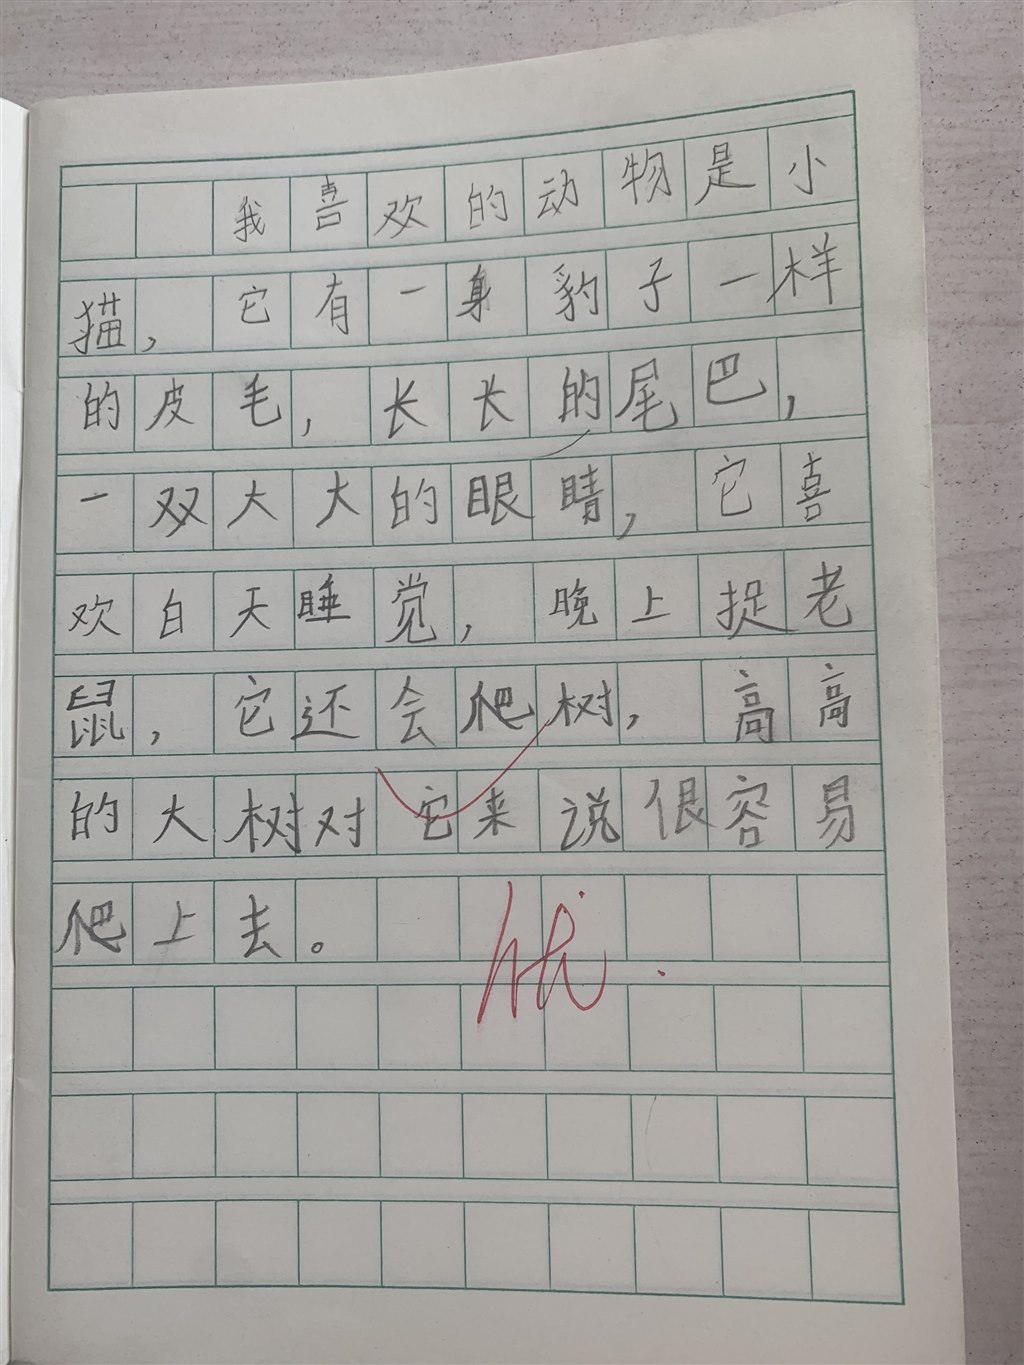 我喜欢的动物是小
猫，它有一身豹子一样
的皮毛，长长的尾巴，
一双大大的眼睛，它喜
欢白天睡觉，晚上捉老
鼠，它还会爬树，高高
的大树对它来说很容易
爬上去。
优